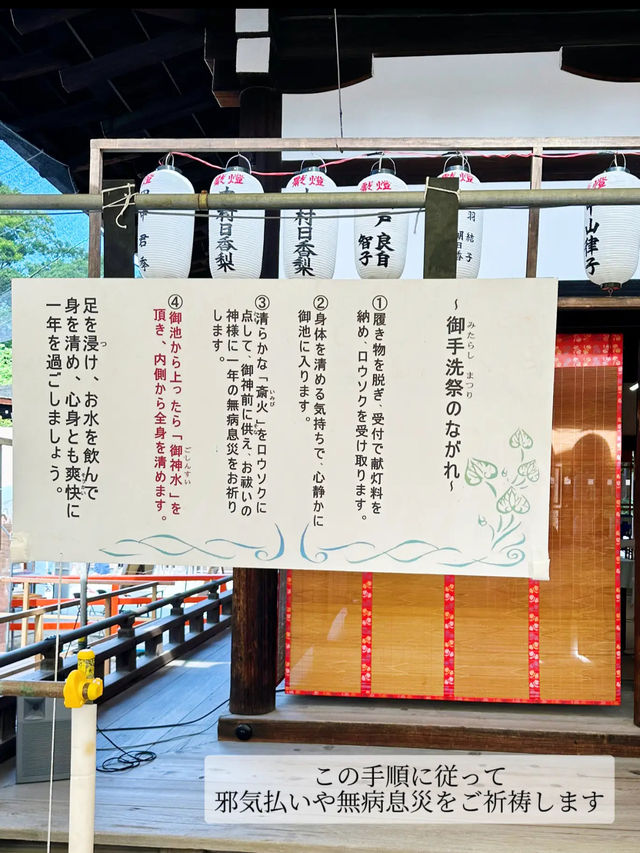 献燈
献燈
献燈
献燈
君香
村日香梨
村日香梨
戸良自
智子
羽穂子
明日香
山律子
～御手洗祭のながれ～
みたらし まつり
①履き物を脱ぎ、受付で献灯料を
納め、ロウソクを受け取ります。
②身体を清める気持ちで、心静かに
御池に入ります。
③清らかな「斎火」をロウソクに
いみび
点して、御神前に供え、お祓いの
神様に一年の無病息災をお祈り
します。
④御池から上ったら「御神水」を
ごしんすい
頂き、内側から全身を清めます。
足を浸け、お水を飲んで
つ
身を清め、心身とも爽快に
一年を過ごしましょう。
この手順に従って
邪気払いや無病息災をご祈祷します